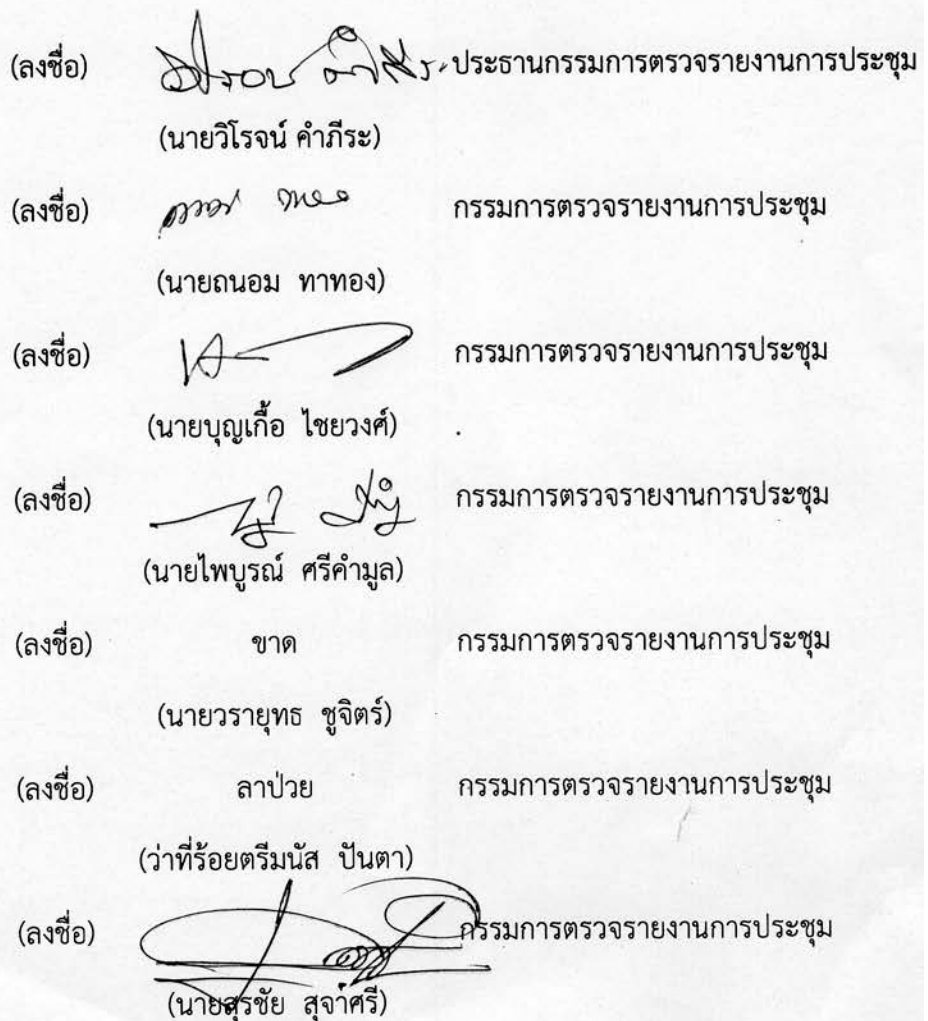 (ลงชื่อ) ประธานกรรมการตรวจรายงานการประชุม
(นายวิโรจน์ คำภีระ)
(ลงชื่อ) กรรมการตรวจรายงานการประชุม
(นายถนอม ทาทอง)
(ลงชื่อ) กรรมการตรวจรายงานการประชุม
(นายบุญเกื้อ ไชยวงศ์)
(ลงชื่อ) กรรมการตรวจรายงานการประชุม
(นายไพบูรณ์ ศรีคำมูล)
(ลงชื่อ) ขาด กรรมการตรวจรายงานการประชุม
(นายวรายุทธ ชูจิตร์)
(ลงชื่อ) ลาป่วย กรรมการตรวจรายงานการประชุม
(ว่าที่ร้อยตรีมนัส ปันตา)
(ลงชื่อ) กรรมการตรวจรายงานการประชุม
(นายสุรชัย สุจาศรี)